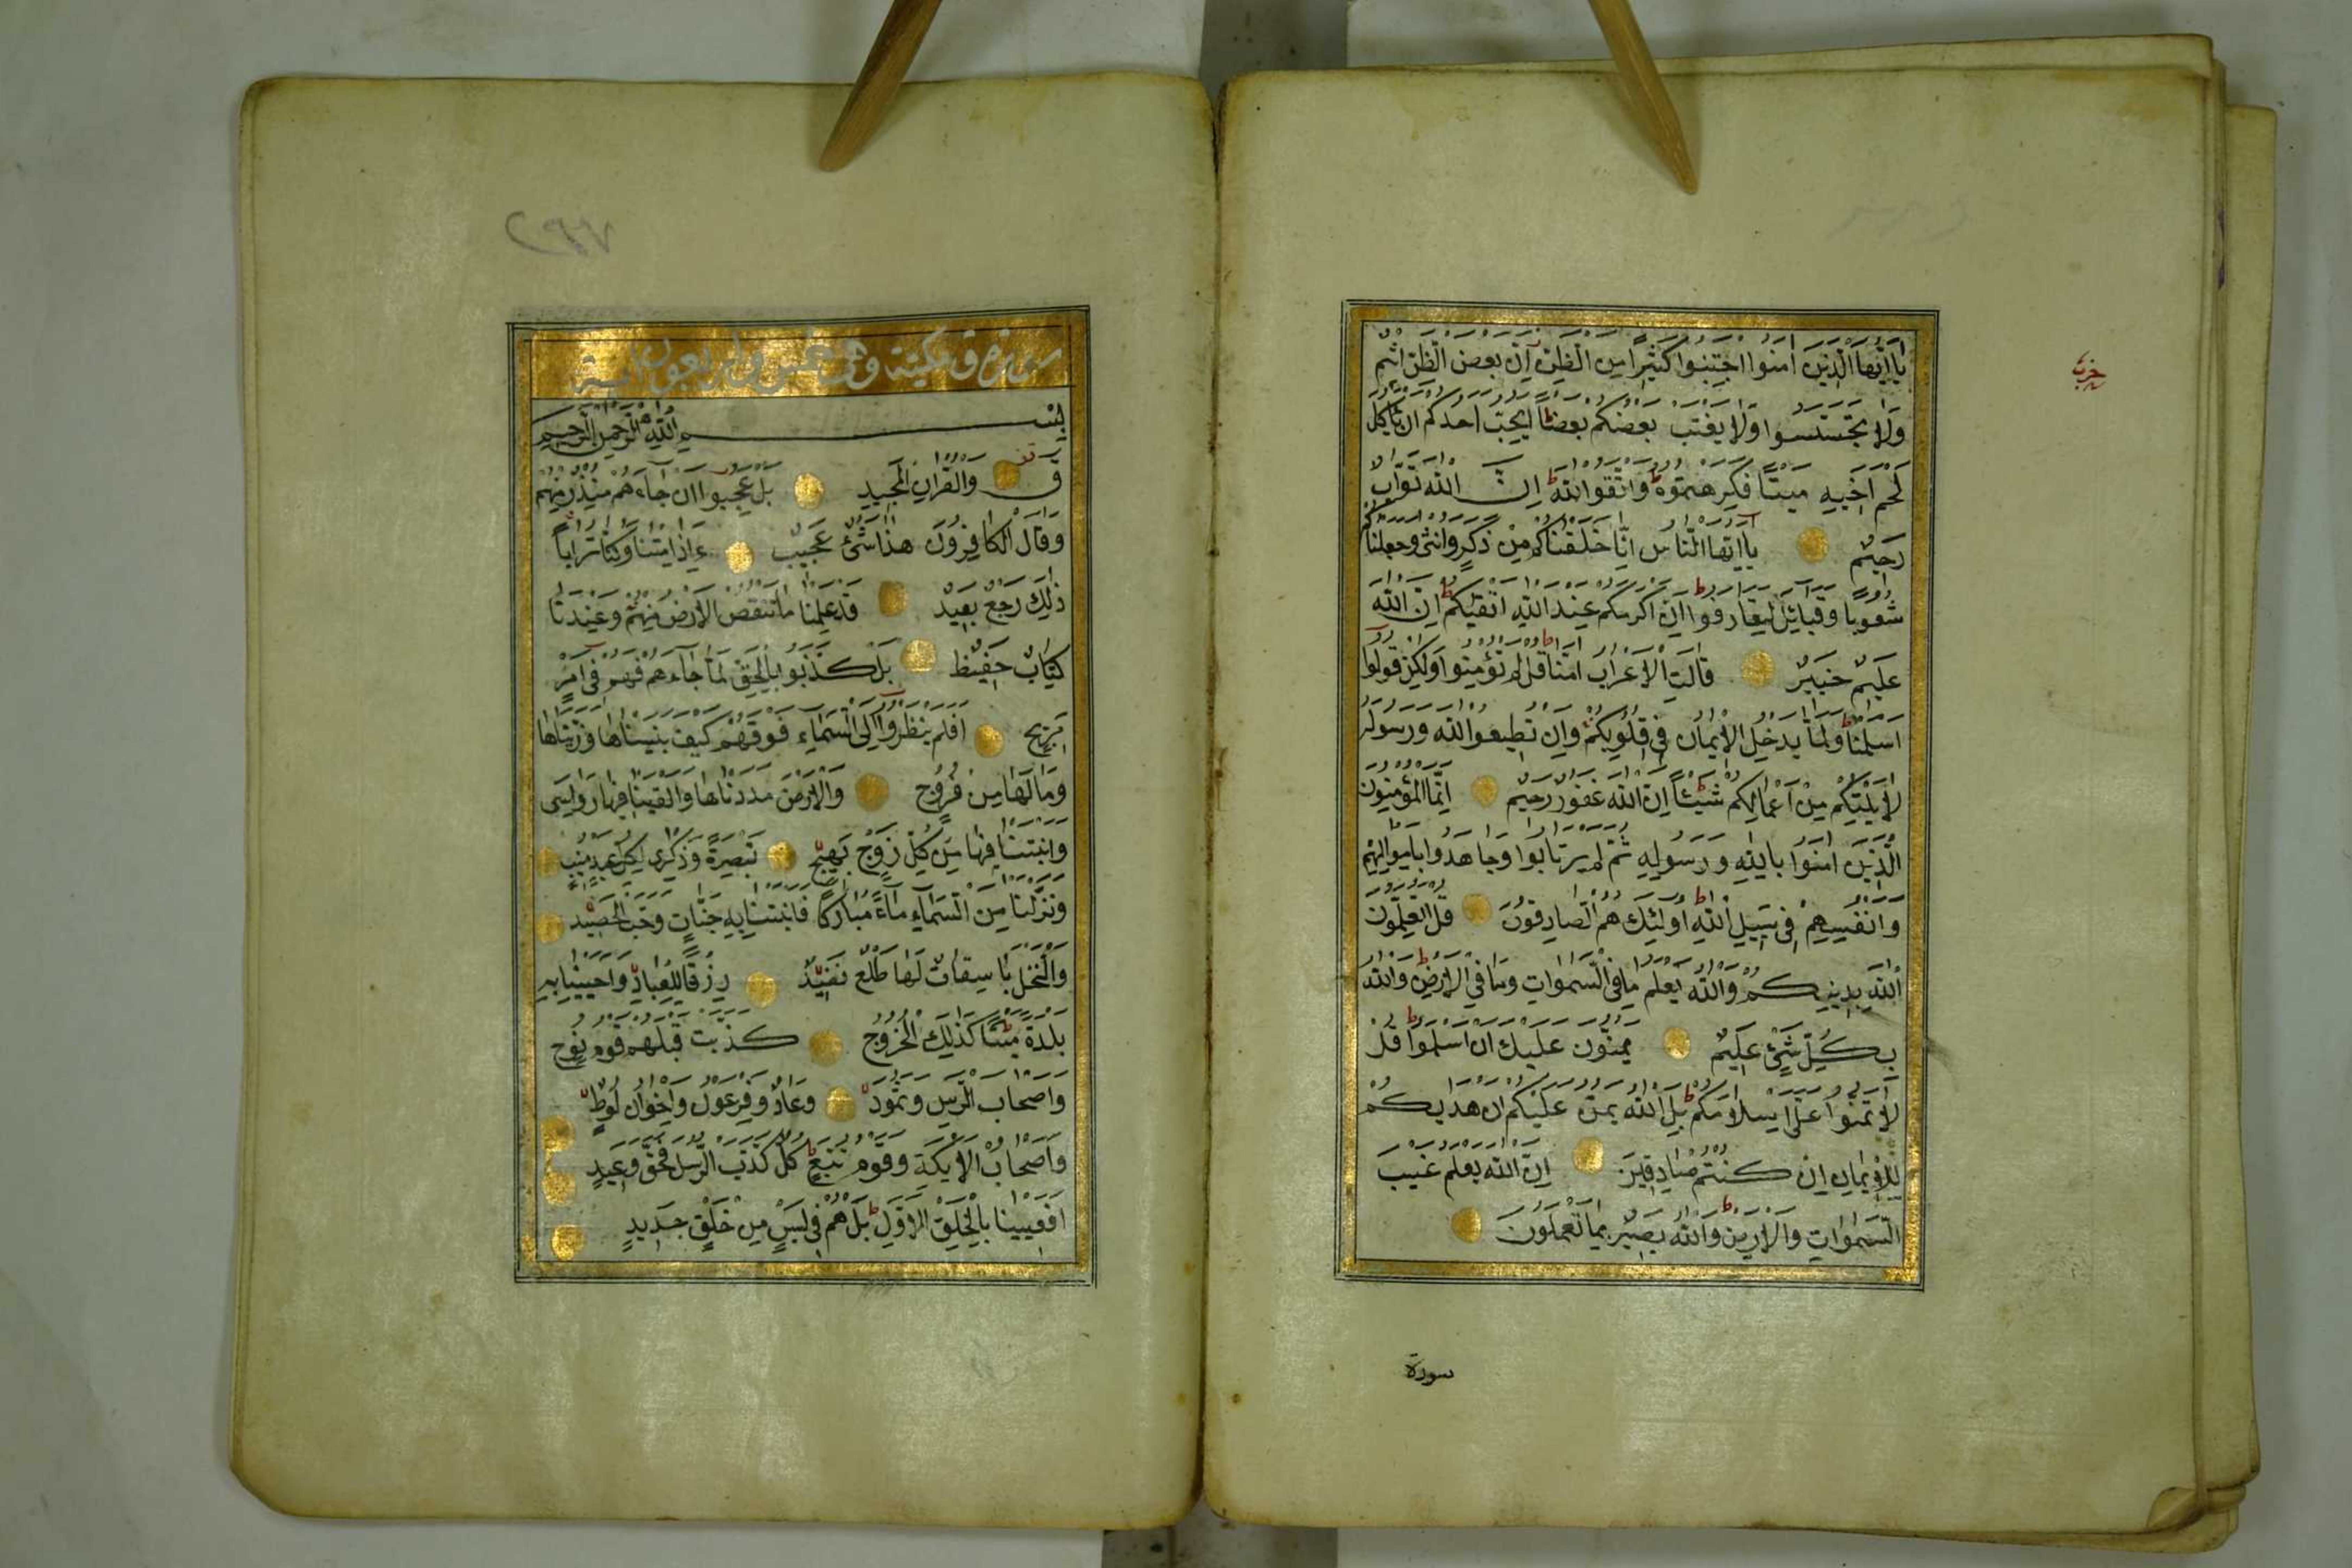 يَا اَيُّهَا الَّذِينَ اٰمَنُوا اجْتَنِبُوا كَثِيرًا مِنَ الظَّنِّ اِنَّ بَعْضَ الظَّنِّ اِثْمٌ
وَلَا تَجَسَّسُوا وَلَا يَغْتَبْ بَعْضُكُمْ بَعْضًا اَيُحِبُّ اَحَدُكُمْ اَنْ يَأْكُلَ
لَحْمَ اَخِيهِ مَيْتًا فَكَرِهْتُمُوهُ وَاتَّقُوا اللّٰهَ اِنَّ اللّٰهَ تَوَّابٌ
رَحِيمٌ يَا اَيُّهَا النَّاسُ اِنَّا خَلَقْنَاكُمْ مِنْ ذَكَرٍ وَاُنْثٰى وَجَعَلْنَاكُمْ
شُعُوبًا وَقَبَائِلَ لِتَعَارَفُوا اِنَّ اَكْرَمَكُمْ عِنْدَ اللّٰهِ اَتْقٰيكُمْ اِنَّ اللّٰهَ
عَلِيمٌ خَبِيرٌ قَالَتِ الْاَعْرَابُ اٰمَنَّا قُلْ لَمْ تُؤْمِنُوا وَلٰكِنْ قُولُوا
اَسْلَمْنَا وَلَمَّا يَدْخُلِ الْاِيمَانُ فِى قُلُوبِكُمْ وَاِنْ تُطِيعُوا اللّٰهَ وَرَسُولَهُ
لَا يَلِتْكُمْ مِنْ اَعْمَالِكُمْ شَيْئًا اِنَّ اللّٰهَ غَفُورٌ رَحِيمٌ اِنَّمَا الْمُؤْمِنُونَ
الَّذِينَ اٰمَنُوا بِاللّٰهِ وَرَسُولِهِ ثُمَّ لَمْ يَرْتَابُوا وَجَاهَدُوا بِاَمْوَالِهِمْ
وَاَنْفُسِهِمْ فِى سَبِيلِ اللّٰهِ اُولٰئِكَ هُمُ الصَّادِقُونَ قُلْ اَتُعَلِّمُونَ
اللّٰهَ بِدِينِكُمْ وَاللّٰهُ يَعْلَمُ مَا فِى السَّمٰوَاتِ وَمَا فِى الْاَرْضِ وَاللّٰهُ
بِكُلِّ شَىْءٍ عَلِيمٌ يَمُنُّونَ عَلَيْكَ اَنْ اَسْلَمُوا قُلْ
لَا تَمُنُّوا عَلَىَّ اِسْلَامَكُمْ بَلِ اللّٰهُ يَمُنُّ عَلَيْكُمْ اَنْ هَدٰيكُمْ
لِلْاِيمَانِ اِنْ كُنْتُمْ صَادِقِينَ اِنَّ اللّٰهَ يَعْلَمُ غَيْبَ
السَّمٰوَاتِ وَالْاَرْضِ وَاللّٰهُ بَصِيرٌ بِمَا تَعْمَلُونَ
سورة
٢٩٧
سورة ق مكية وهى خمس واربعون آية
بِسْمِ اللّٰهِ الرَّحْمٰنِ الرَّحِيمِ
قٓ وَالْقُرْاٰنِ الْمَجِيدِ بَلْ عَجِبُوا اَنْ جَاءَهُمْ مُنْذِرٌ مِنْهُمْ
فَقَالَ الْكَافِرُونَ هٰذَا شَىْءٌ عَجِيبٌ ءَاِذَا مِتْنَا وَكُنَّا تُرَابًا
ذٰلِكَ رَجْعٌ بَعِيدٌ قَدْ عَلِمْنَا مَا تَنْقُصُ الْاَرْضُ مِنْهُمْ وَعِنْدَنَا
كِتَابٌ حَفِيظٌ بَلْ كَذَّبُوا بِالْحَقِّ لَمَّا جَاءَهُمْ فَهُمْ فِى اَمْرٍ
مَرِيجٍ اَفَلَمْ يَنْظُرُوا اِلَى السَّمَاءِ فَوْقَهُمْ كَيْفَ بَنَيْنَاهَا وَزَيَّنَّاهَا
وَمَا لَهَا مِنْ فُرُوجٍ وَالْاَرْضَ مَدَدْنَاهَا وَاَلْقَيْنَا فِيهَا رَوَاسِىَ
وَاَنْبَتْنَا فِيهَا مِنْ كُلِّ زَوْجٍ بَهِيجٍ تَبْصِرَةً وَذِكْرٰى لِكُلِّ عَبْدٍ مُنِيبٍ
وَنَزَّلْنَا مِنَ السَّمَاءِ مَاءً مُبَارَكًا فَاَنْبَتْنَا بِهِ جَنَّاتٍ وَحَبَّ الْحَصِيدِ
وَالنَّخْلَ بَاسِقَاتٍ لَهَا طَلْعٌ نَضِيدٌ رِزْقًا لِلْعِبَادِ وَاَحْيَيْنَا بِهِ
بَلْدَةً مَيْتًا كَذٰلِكَ الْخُرُوجُ كَذَّبَتْ قَبْلَهُمْ قَوْمُ نُوحٍ
وَاَصْحَابُ الرَّسِّ وَثَمُودُ وَعَادٌ وَفِرْعَوْنُ وَاِخْوَانُ لُوطٍ
وَاَصْحَابُ الْاَيْكَةِ وَقَوْمُ تُبَّعٍ كُلٌّ كَذَّبَ الرُّسُلَ فَحَقَّ وَعِيدِ
اَفَعَيِينَا بِالْخَلْقِ الْاَوَّلِ بَلْ هُمْ فِى لَبْسٍ مِنْ خَلْقٍ جَدِيدٍ